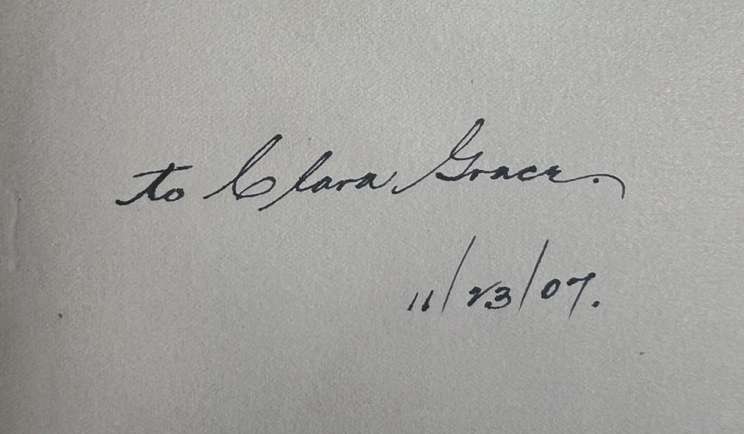 to Clara Grace.
11/23/07.